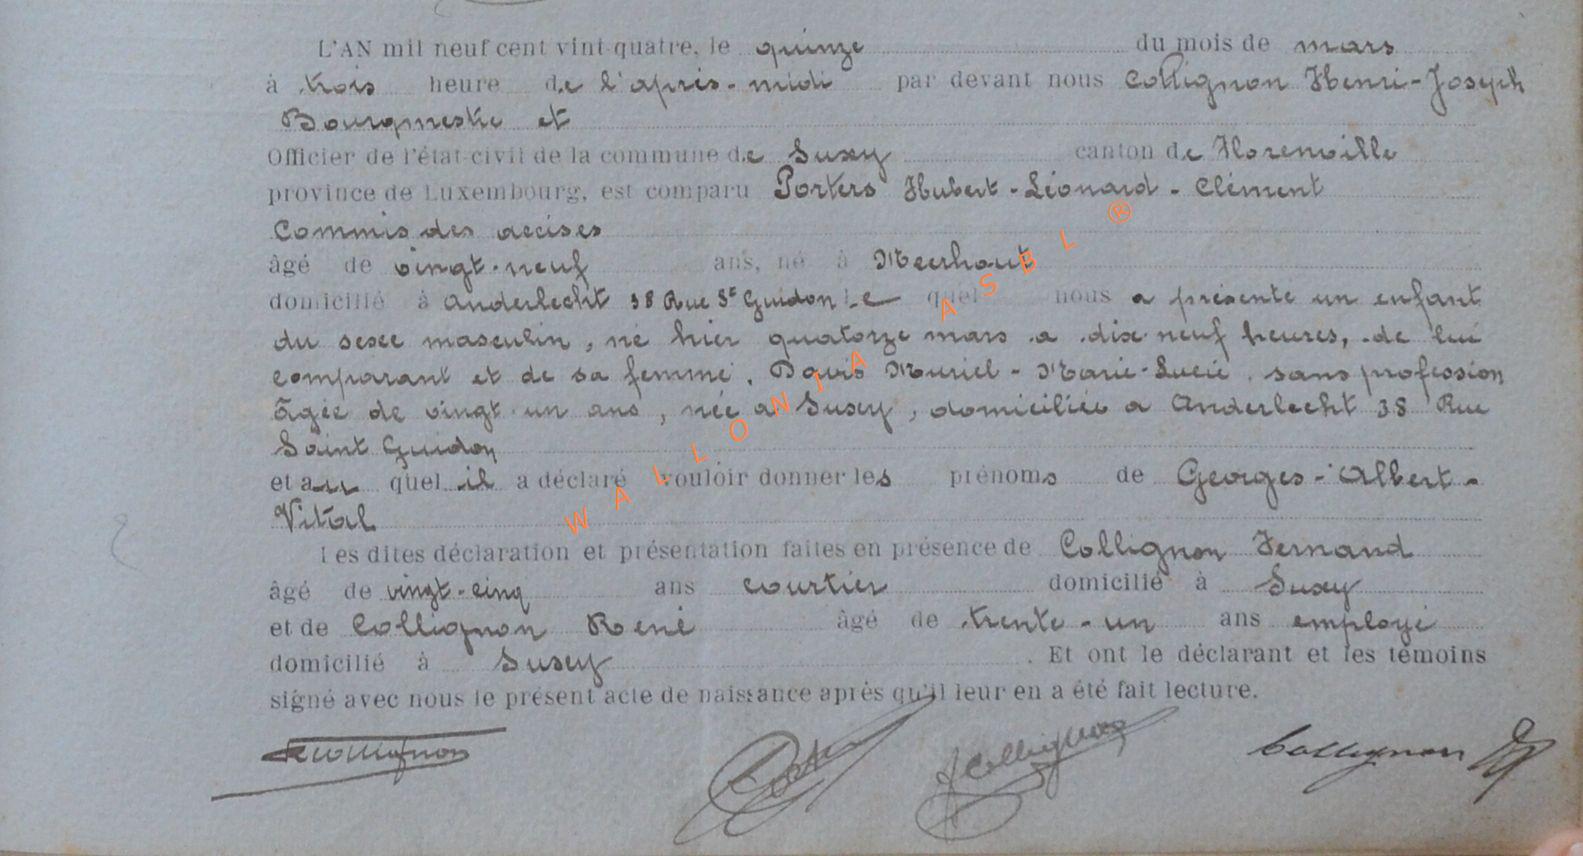 L'AN mil neuf cent vint-quatre, le quinze du mois de mars
à trois heure de l'après-midi par devant nous Collignon Henri-Joseph
Bourgmestre et
Officier de l'état-civil de la commune de Suxy canton de Florenville
province de Luxembourg, est comparu Porters Hubert-Léonard-Clément
Commis des accises
âgé de vingt-neuf ans, né à Meerhout
domicilié à Anderlecht 38 Rue St Guidon Le quel nous a présenté un enfant
du sexe masculin, né hier quatorze mars a dix-neuf heures, de lui
comparant et de sa femme, Davis Muriel-Marie-Lucie, sans profession
âgée de vingt-un ans, née a Suxy, domiciliée a Anderlecht 38 Rue
Saint Guidon
et au quel il a déclaré vouloir donner les prénoms de Georges-Albert-
Vital
Les dites déclaration et présentation faites en présence de Collignon Fernand
âgé de vingt-cinq ans courtier domicilié à Suxy
et de Collignon René âgé de trente-un ans employé
domicilié à Suxy. Et ont le déclarant et les témoins
signé avec nous le présent acte de naissance après qu'il leur en a été fait lecture.
RCollignon FCollignon Collignon
WALLONIA ASBL ®